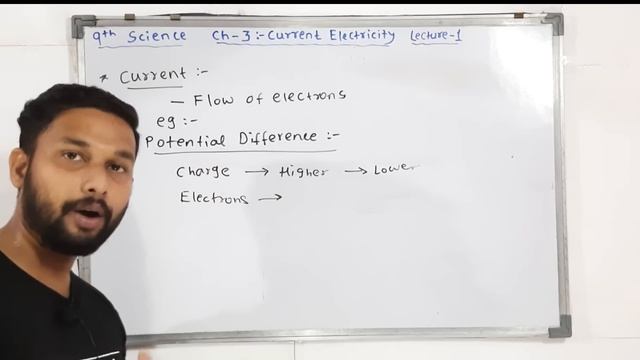 9th Science Ch-3:- Current Electricity Lecture-1
* Current :-
— Flow of electrons
eg :-
Potential Difference :-
Charge → Higher → Lower
Electrons →